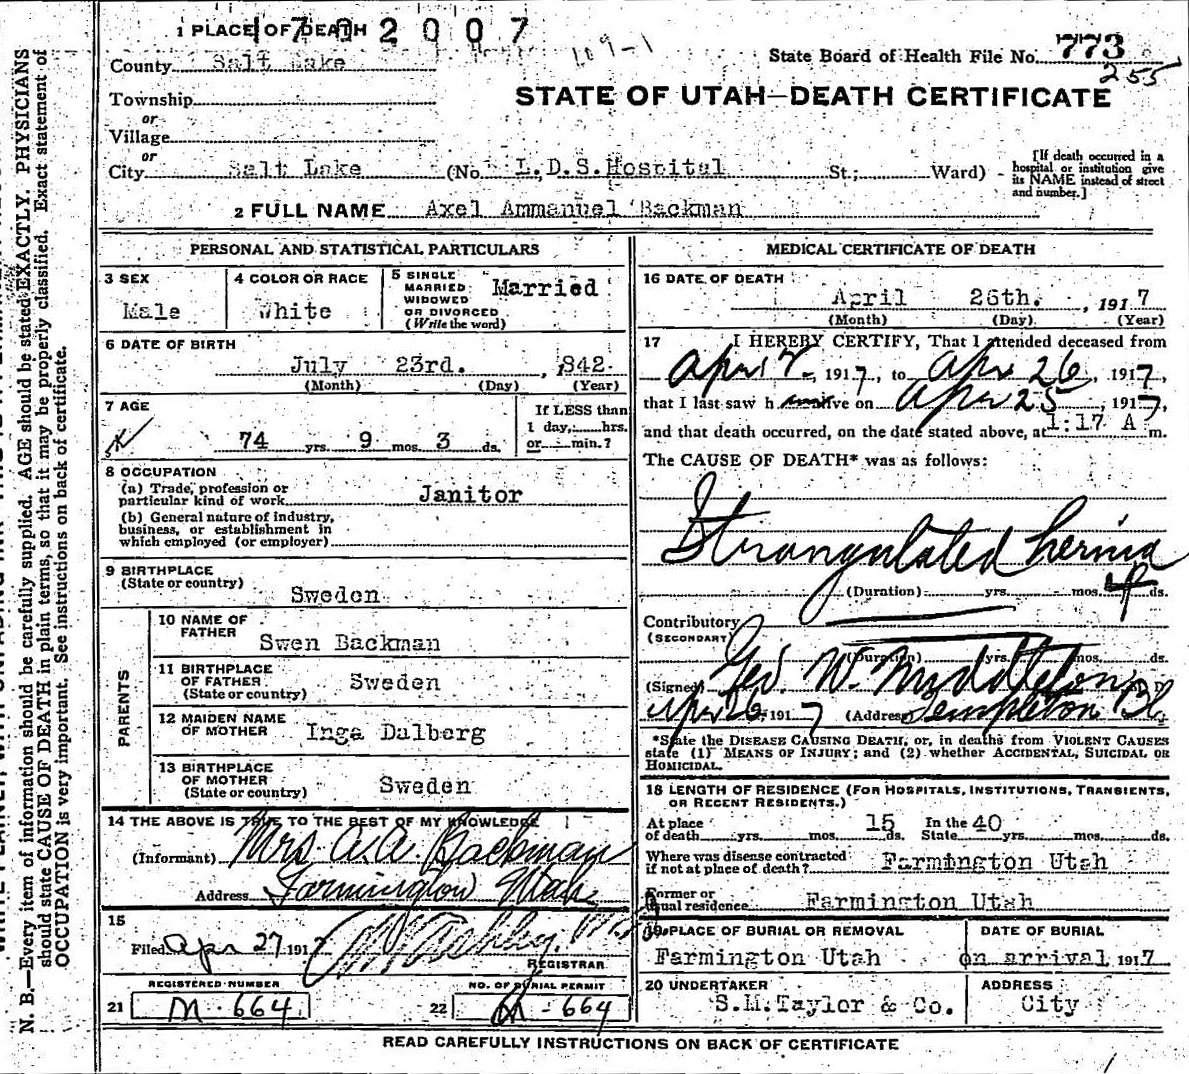 1702007
1 PLACE OF DEATH
109-1
State Board of Health File No. 773
255
County Salt Lake
STATE OF UTAH—DEATH CERTIFICATE
Township
or
Village
or
City Salt Lake (No L.D.S.Hospital St.; Ward)
[If death occurred in a
hospital or institution give
its NAME instead of street
and number.]
2 FULL NAME Axel Ammanuel Backman
PERSONAL AND STATISTICAL PARTICULARS
3 SEX
Male
4 COLOR OR RACE
White
5 SINGLE
MARRIED
WIDOWED
OR DIVORCED
(Write the word)
Married
6 DATE OF BIRTH
July 23rd. , 1842.
(Month) (Day) (Year)
7 AGE
74 yrs. 9 mos. 3 ds.
If LESS than
1 day, hrs.
or min.?
8 OCCUPATION
(a) Trade, profession or
particular kind of work Janitor
(b) General nature of industry,
business, or establishment in
which employed (or employer)
9 BIRTHPLACE
(State or country)
Sweden
PARENTS
10 NAME OF
FATHER
Swen Backman
11 BIRTHPLACE
OF FATHER
(State or country)
Sweden
12 MAIDEN NAME
OF MOTHER
Inga Dalberg
13 BIRTHPLACE
OF MOTHER
(State or country)
Sweden
14 THE ABOVE IS TRUE TO THE BEST OF MY KNOWLEDGE
(Informant) Mrs A.A. Backman
Address Farmington Utah
15
Filed Apr 27 1917
REGISTRAR
REGISTERED NUMBER
21 M-664
NO. OF BURIAL PERMIT
22 664
MEDICAL CERTIFICATE OF DEATH
16 DATE OF DEATH
April 26th. , 1917
(Month) (Day) (Year)
17 I HEREBY CERTIFY, That I attended deceased from
, 1917, to Apr 26, 1917,
that I last saw h alive on Apr 25, 1917,
and that death occurred, on the date stated above, at 1:17 A m.
The CAUSE OF DEATH* was as follows:
Strangulated hernia
(Duration) yrs. mos. 4 ds.
Contributory
(SECONDARY)
(Duration) yrs. mos. ds.
(Signed) Geo. W. Middleton
Apr 26, 1917 (Address) Templeton Bl
*State the DISEASE CAUSING DEATH, or, in deaths from VIOLENT CAUSES
state (1) MEANS OF INJURY; and (2) whether ACCIDENTAL, SUICIDAL OR
HOMICIDAL.
18 LENGTH OF RESIDENCE (FOR HOSPITALS, INSTITUTIONS, TRANSIENTS,
OR RECENT RESIDENTS.)
At place
of death yrs. mos. 15 ds. In the State 40 yrs. mos. ds.
Where was disease contracted
if not at place of death? Farmington Utah
Former or
usual residence Farmington Utah
19 PLACE OF BURIAL OR REMOVAL
Farmington Utah
DATE OF BURIAL
on arrival 1917
20 UNDERTAKER
S.M.Taylor & Co.
ADDRESS
City
READ CAREFULLY INSTRUCTIONS ON BACK OF CERTIFICATE
N. B.—Every item of information should be carefully supplied. AGE should be stated EXACTLY. PHYSICIANS
should state CAUSE OF DEATH in plain terms, so that it may be properly classified. Exact statement of
OCCUPATION is very important. See instructions on back of certificate.